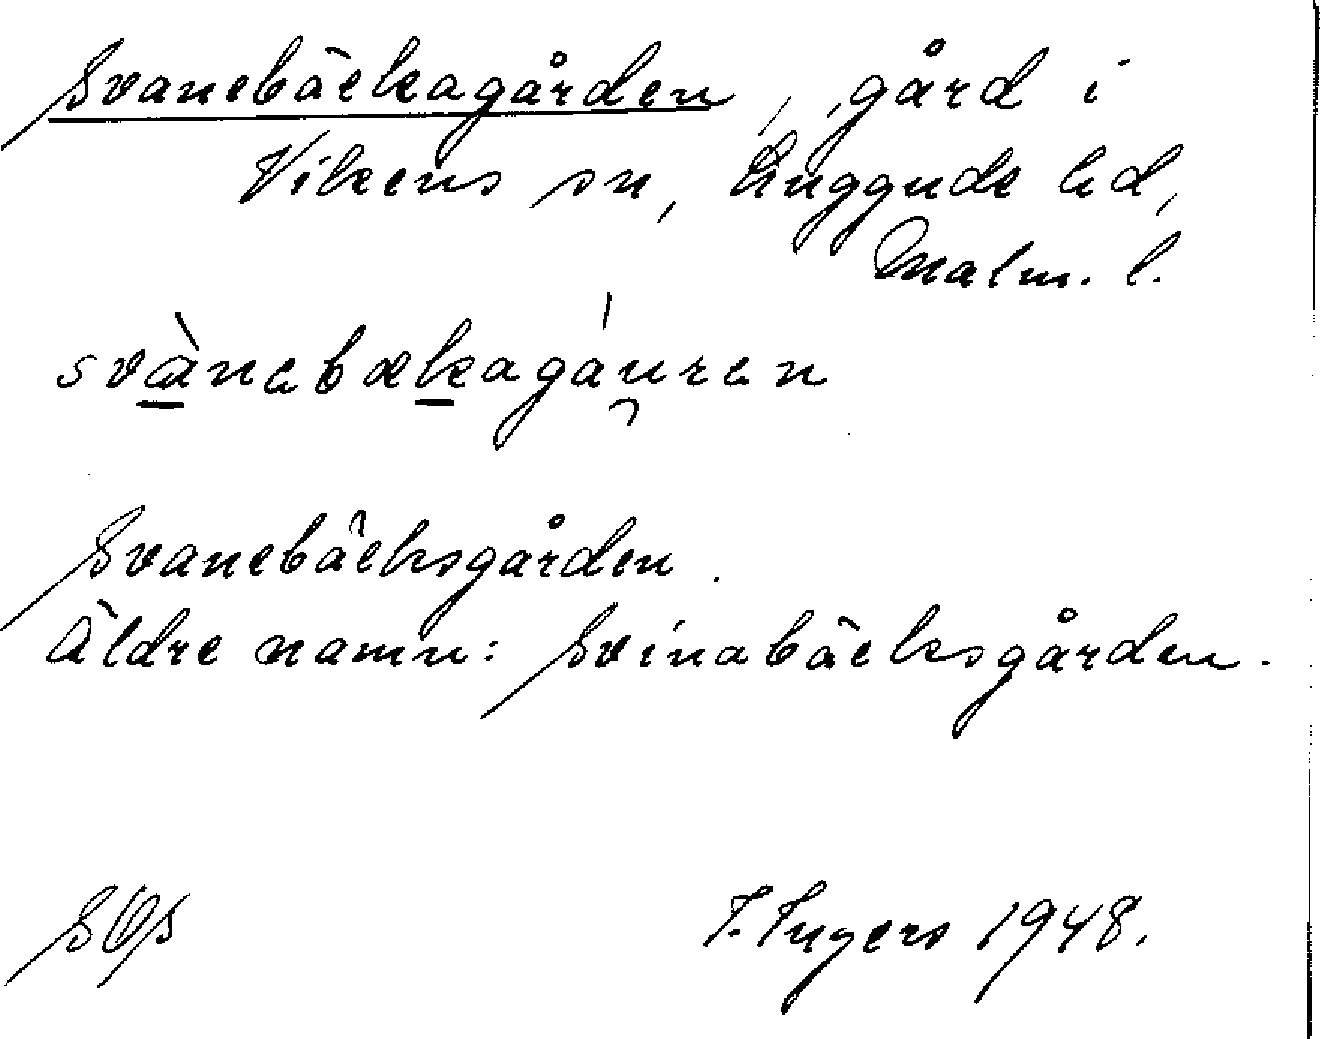 Svanebäckagården, gård i
Vikens sn, Luggude hd,
Malm. l.
svànebækagáu̯ren
Svanebäcksgården.
Äldre namn: Svinabäcksgården.
I. Ingers 1948.